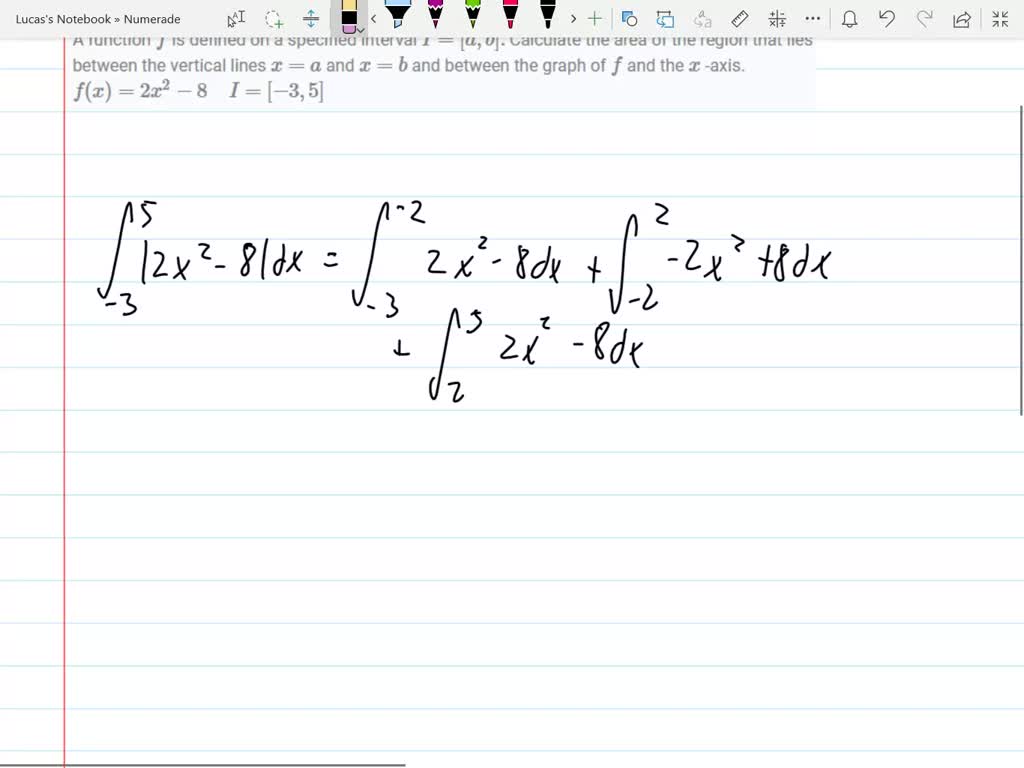 Lucas's Notebook » Numerade
A function f is defined on a specified interval I = [a, b]. Calculate the area of the region that lies
between the vertical lines x = a and x = b and between the graph of f and the x -axis.
f(x) = 2x² − 8 I = [−3, 5]
∫₋₃⁵ |2x² - 8| dx = ∫₋₃⁻² 2x² - 8dx + ∫₋₂² -2x² + 8dx
+ ∫₂⁵ 2x² - 8dx